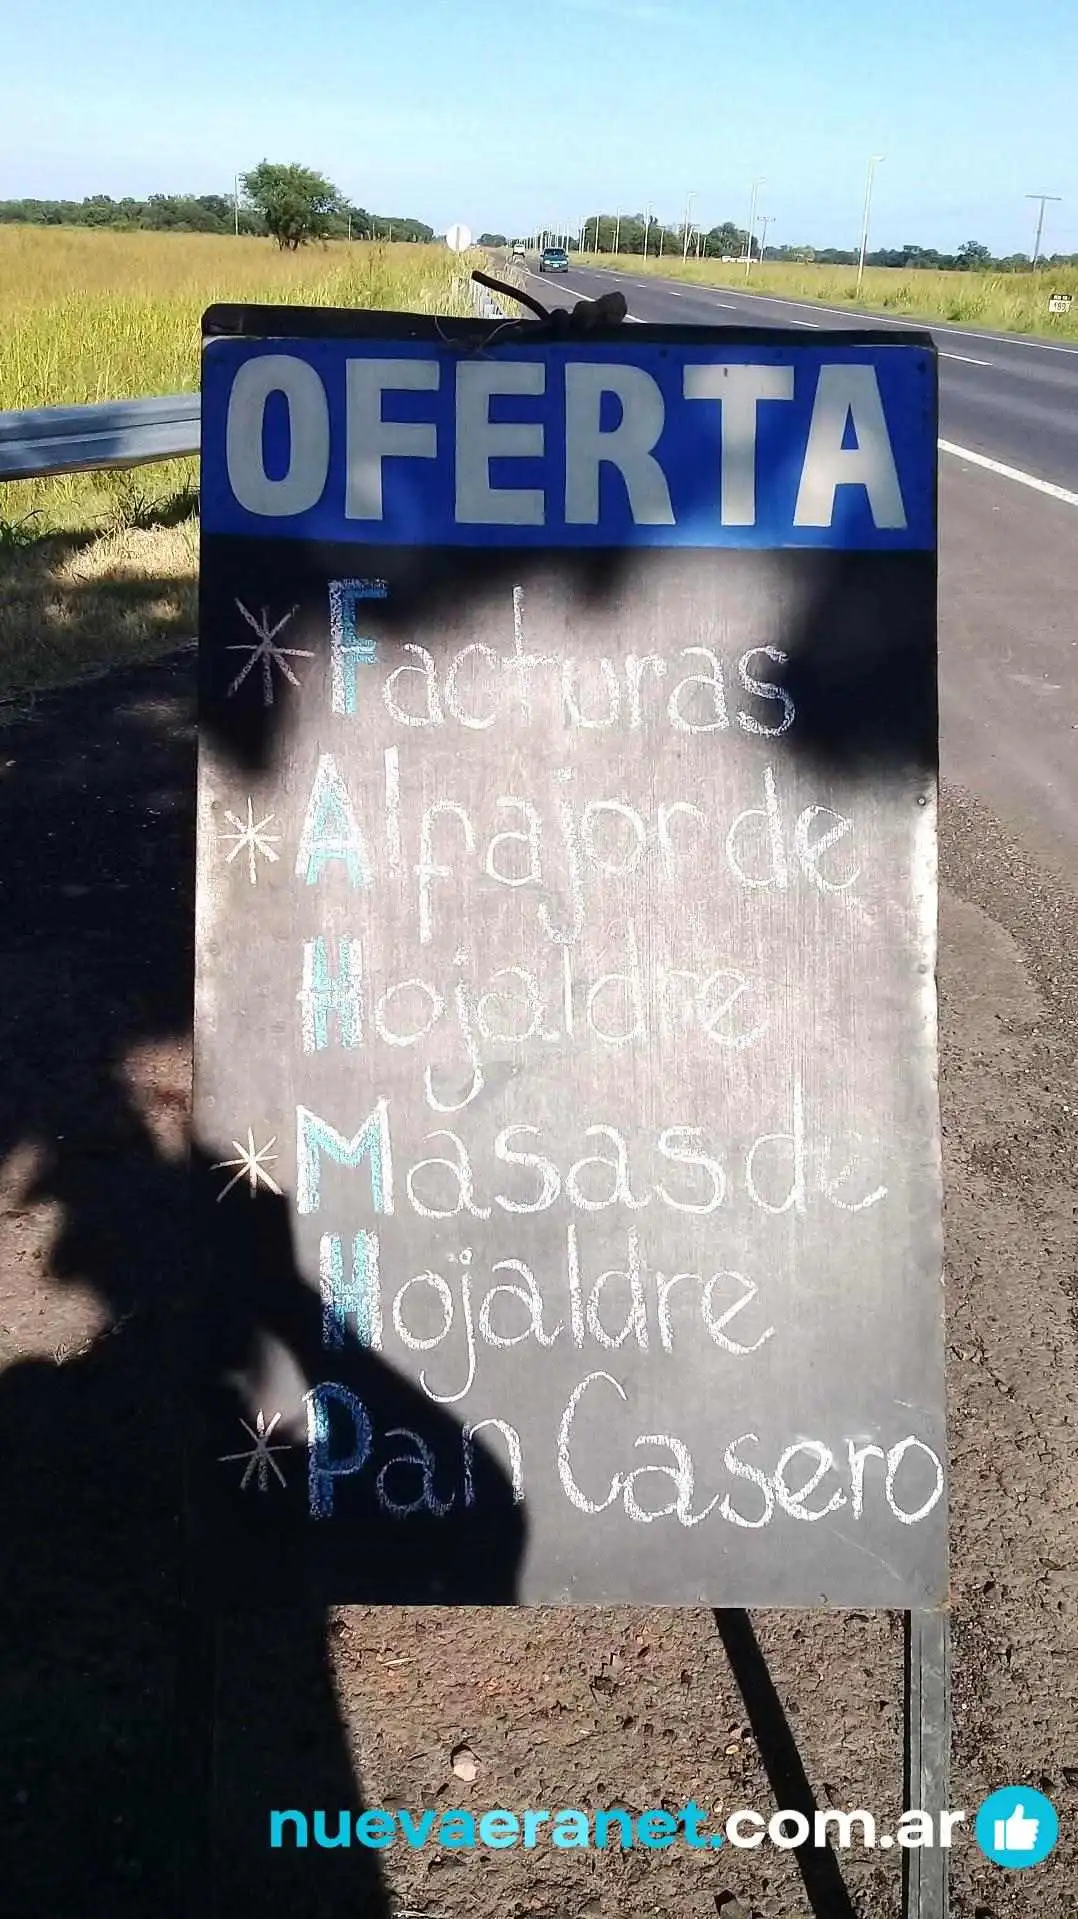 OFERTA
* Facturas
* Alfajor de
Hojaldre
* Masas de
Hojaldre
* Pan Casero
nuevaeranet.com.ar